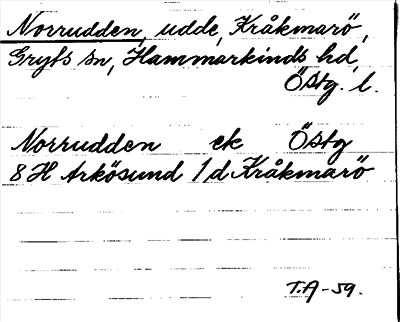 Norrudden, udde, Kråkmarö,
Gryts sn, Hammarkinds hd,
Östg. l.
Norrudden ek Östg
8H Arkösund 1/d Kråkmarö
T.A-59.